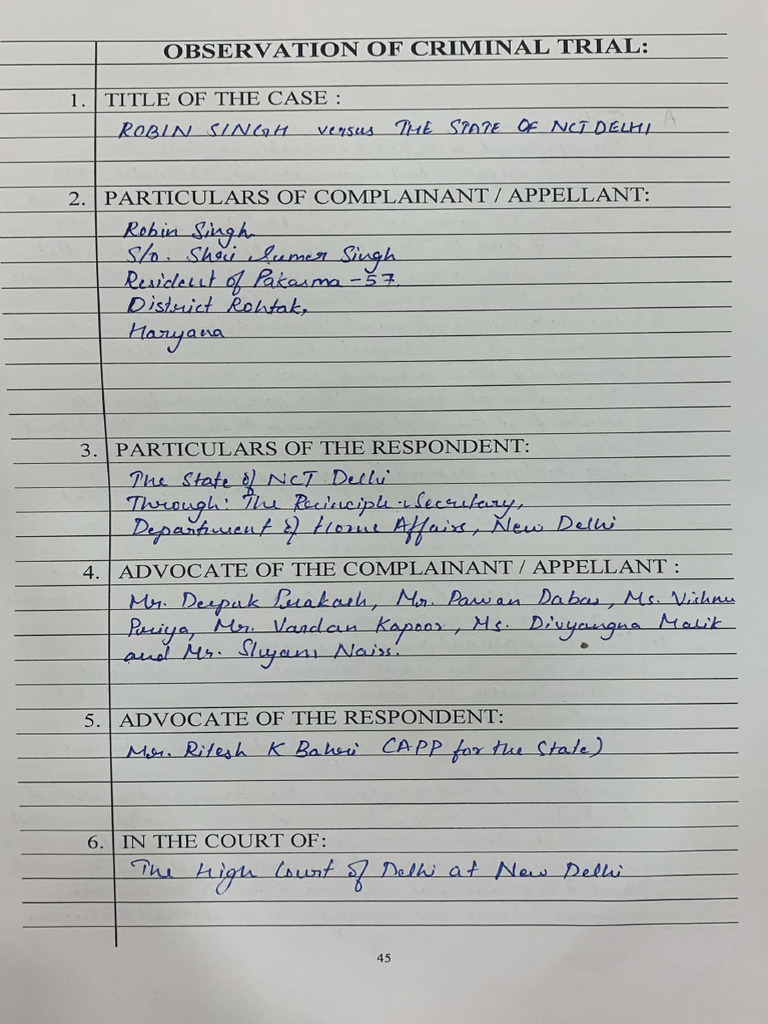 OBSERVATION OF CRIMINAL TRIAL:
1. TITLE OF THE CASE :
ROBIN SINGH versus THE STATE OF NCT DELHI
2. PARTICULARS OF COMPLAINANT / APPELLANT:
Robin Singh
S/o. Shri Sumer Singh
Resident of Pakasma - 57.
District Rohtak,
Haryana
3. PARTICULARS OF THE RESPONDENT:
The State of NCT Delhi
Through: The Principle Secretary,
Department of Home Affairs, New Delhi
4. ADVOCATE OF THE COMPLAINANT / APPELLANT :
Mr. Deepak Prakash, Mr. Pawan Dabas, Ms. Vishnu
Priya, Mr. Vardan Kapoor, Ms. Divyangna Malik
and Mr. Shyam Nair.
5. ADVOCATE OF THE RESPONDENT:
Mr. Ritesh K Bahri (APP for the State)
6. IN THE COURT OF:
The High Court of Delhi at New Delhi
45